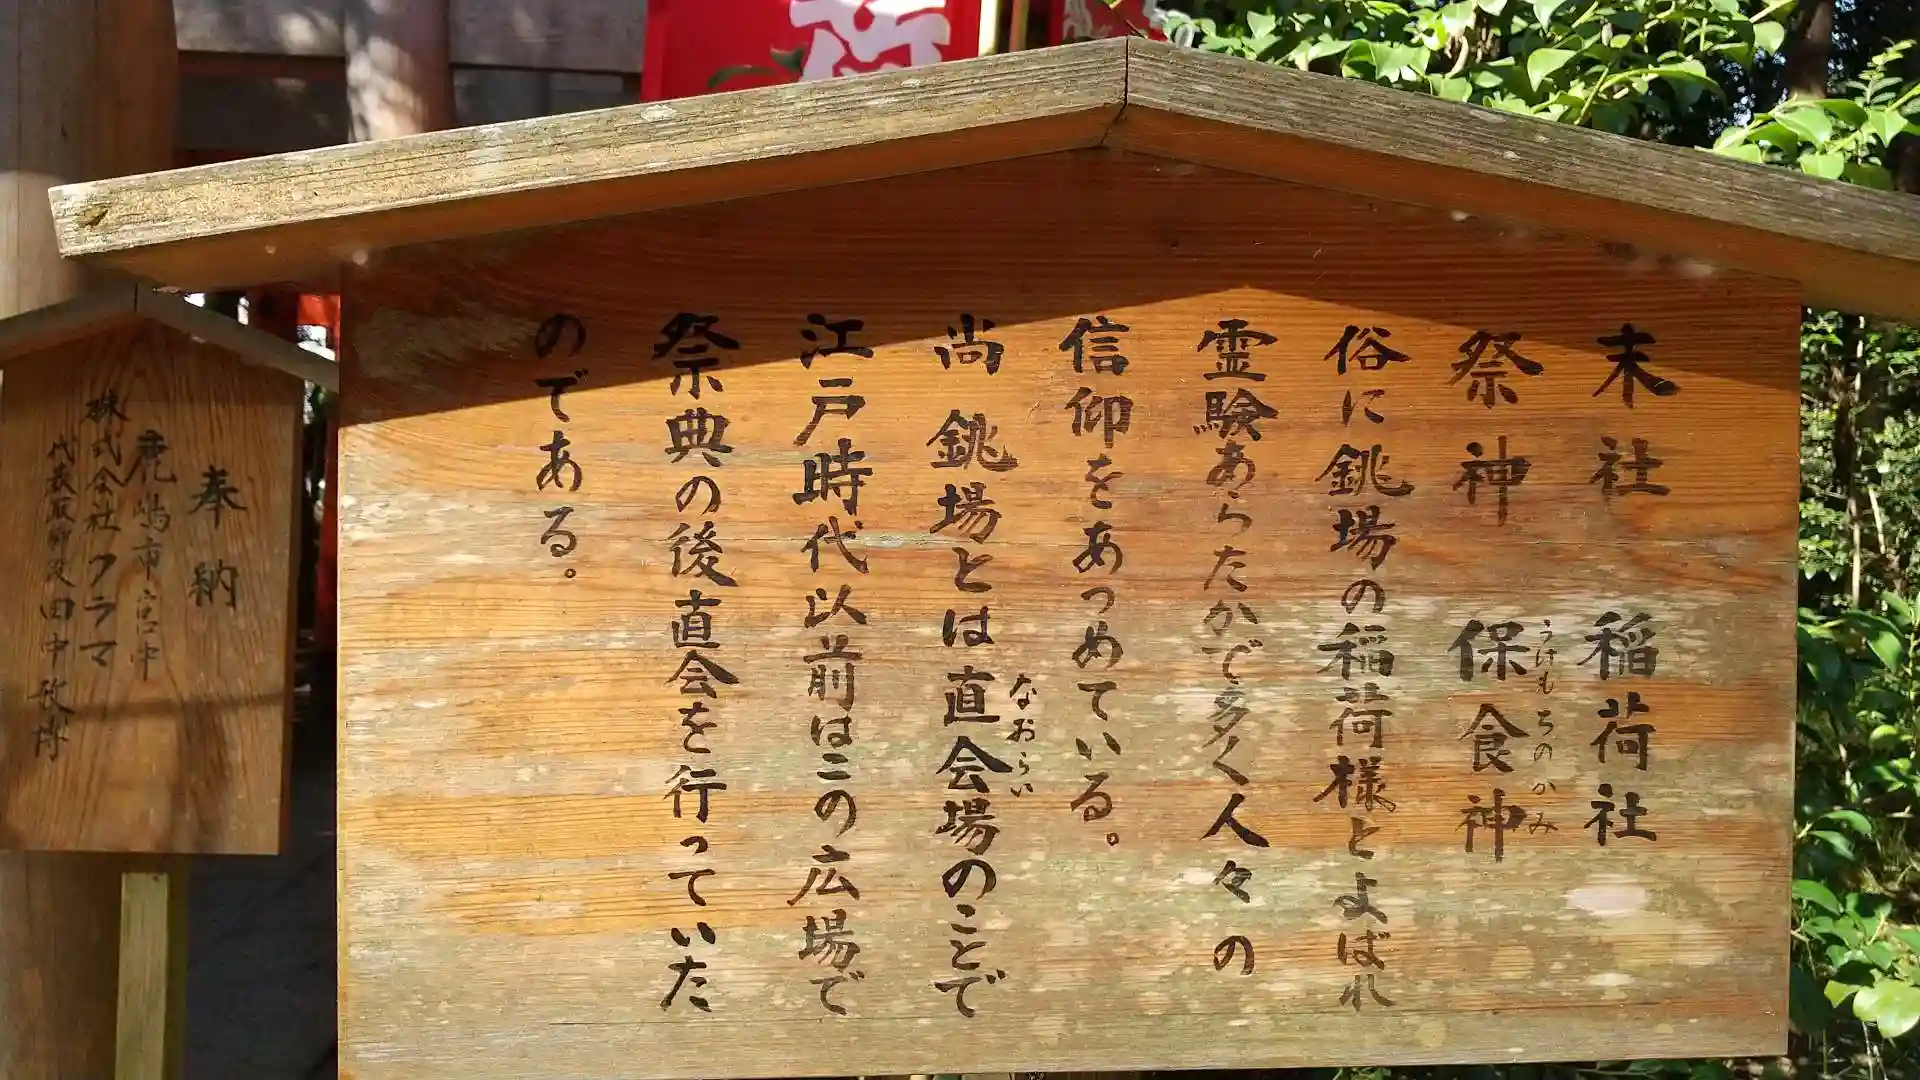 末社 稲荷社
祭神 保食神
うけもちのかみ
俗に銚場の稲荷様とよばれ
霊験あらたかで多く人々の
信仰をあつめている。
尚 銚場とは直会場のことで
なおらい
江戸時代以前はこの広場で
祭典の後直会を行っていた
のである。
奉納
鹿嶋市宮中
株式会社クラマ
代表取締役田中敏博